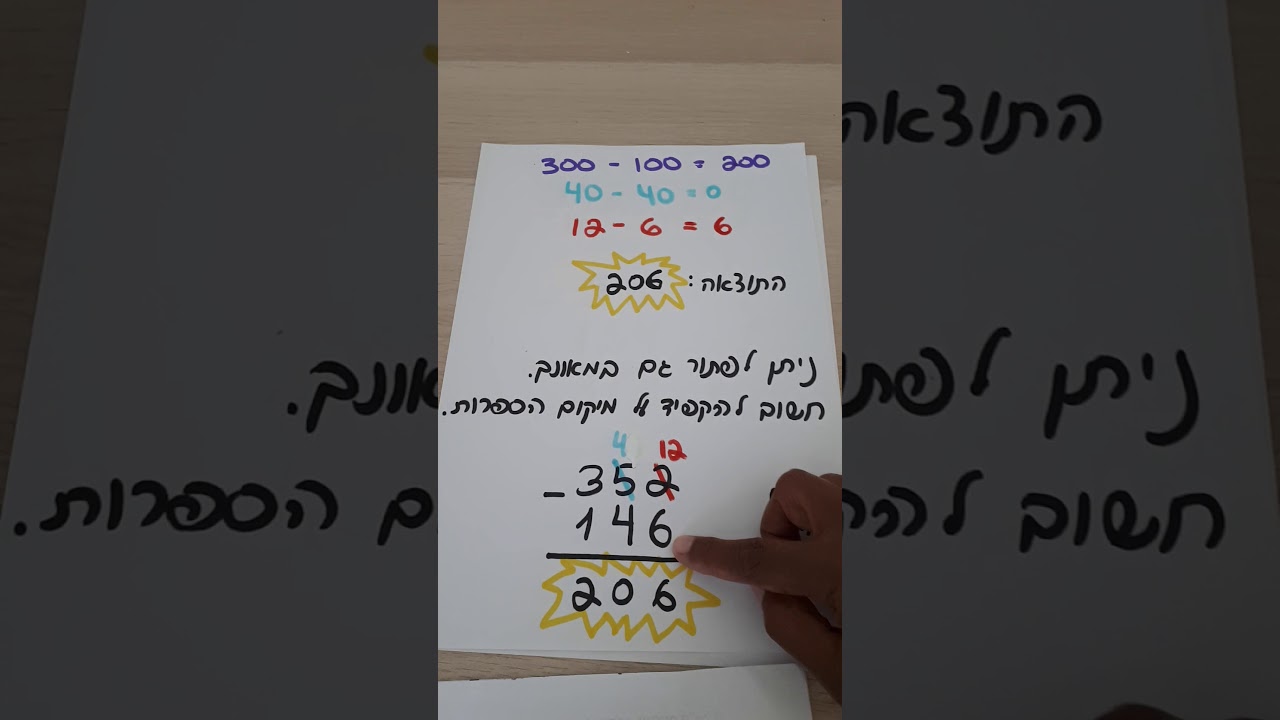 300 - 100 = 200
40 - 40 = 0
12 - 6 = 6
התוצאה: 206
ניתן לפתור גם במאונך.
חשוב להקפיד על מיקום הספרות.
4 12
- 352
146
206